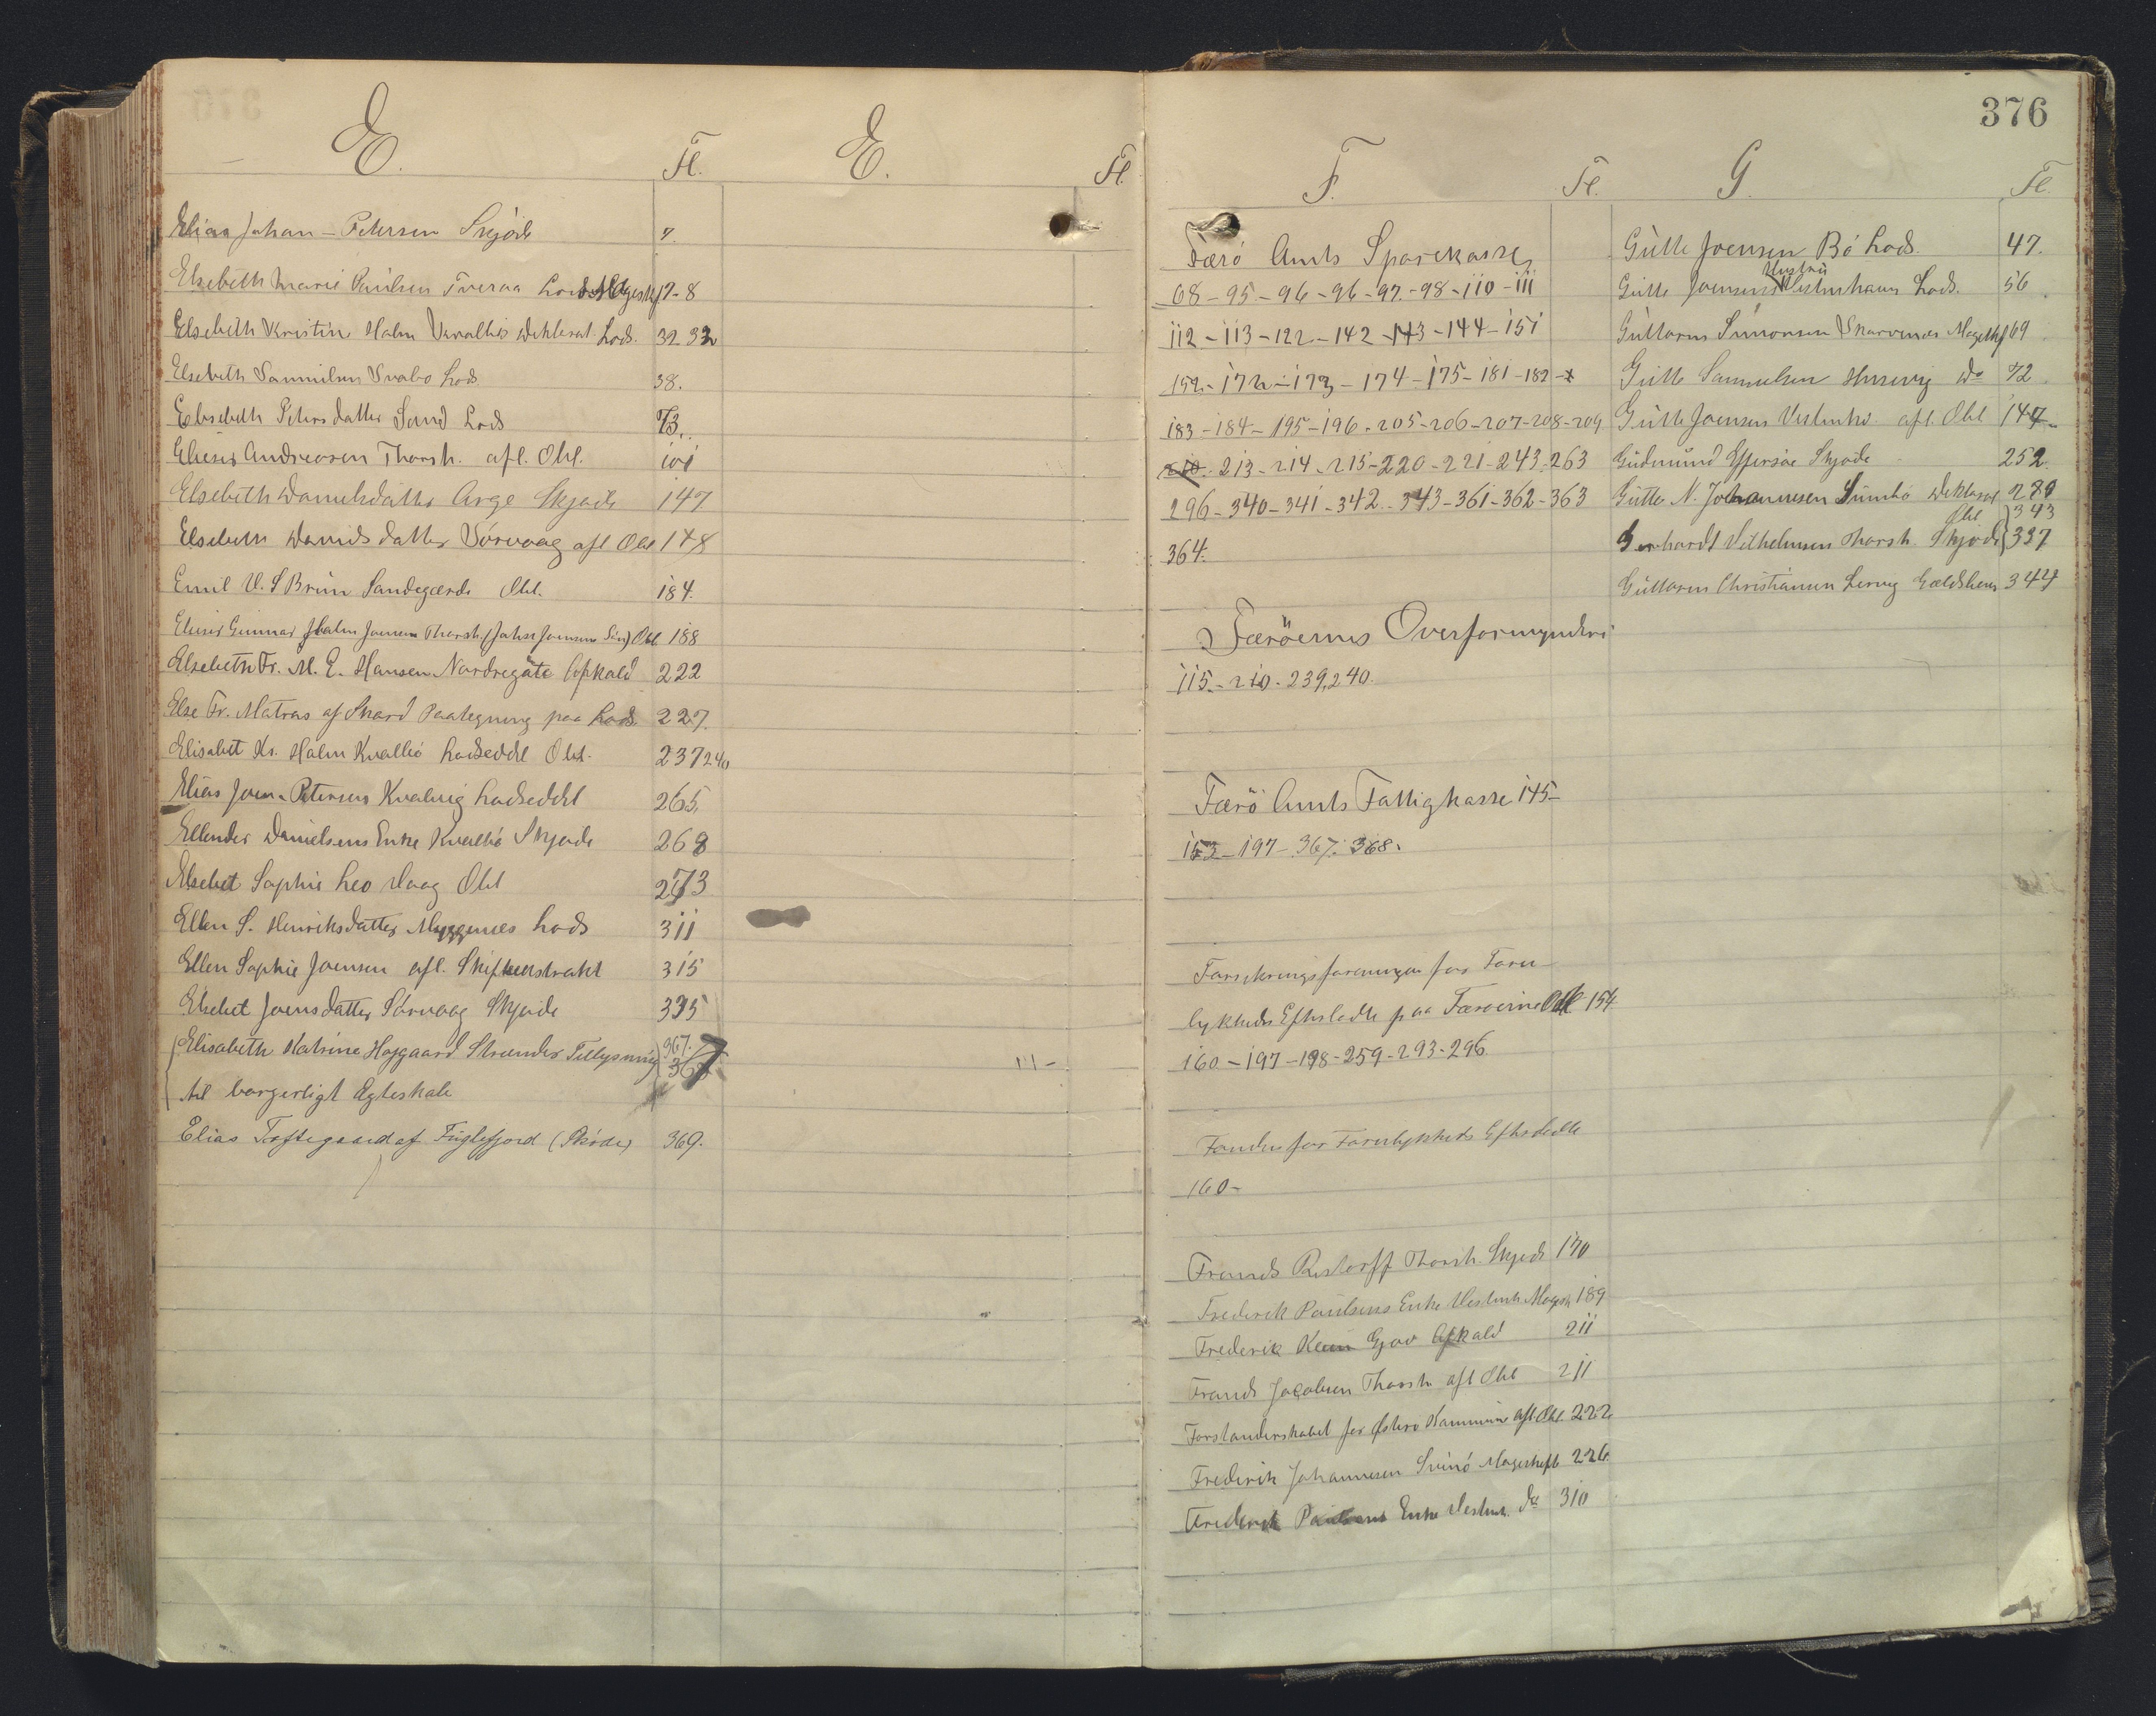 E. Fl. E. Fl.
Elias Johan-Petersen Skjöde 7.
Elsebeth Marie Paulsen Tveraa Lods Magesk. 7-8
Elsebeth Kristin Halm Qvalbö Deklarat. Lods. 32 32
Elsebeth Samuilsen Svabo Lods 38.
Elsebeth Petersdatter Sand Lods 73.
Elieser Andreasen Thorsh. afl. Obl. 101
Elsebeth Danielsdatter Arge Skjøde 147
Elsebeth Davidsdatter Sörvaag afl Obl 148
Emil V. S Brun Sandegærde Obl. 184.
Elieser Gunnar Halm Joensen Thorsh. (John Joensens Sön) Obl 188
Elsebeth Fr. M. E. Hansen Nordregöte Opkald 222
Else Fr. Matras af Skard Paategning paa Lods 227.
Elisabet Kr. Halm Kvalbö Lodseddel Obl. 237 240
Elias Joen-Petersen Kvalvig Lodseddel 265.
Ellender Danielsens Enke Kvalbö Skjøde 268
Elsebet Sophie Leo Vaag Obl 273
Ellen S. Henriksdatter Myggenæs Lods 311
Ellen Sophie Joensen afl. Skifteextrakt 315
Elsebet Joensdatter Sörvaag Skjøde 335
Elisabeth Katrine Højgaard Strænder Tillysning 367.
til borgerligt Ægteskab 367
Elias Toftegaard af Fuglefjord (Skøde) 369.
376
F. Fl.
Færö Amts Sparekasse
68-95-96-96-97-98-110-111
112-113-122-142-143-144-151
152-172-173-174-175-181-182-
183-184-195-196-205-206-207-208-209
210-213-214-215-220-221-243-263
296-340-341-342-343-361-362-363
364.
Færöernes Overformynderi
115.-210-239,240.
Færö Amts Fattigkasse 145-
153-197-367. 368.
Forsikringsforeningen for Foru-
lykkedes Efterladte paa Færøerne Obl 154
160-197-198-259-293-296.
Fonden for Forulykkedes Efterladte
160-
Frands Restorff Thorsh. Skjøde 170
Frederik Paulsens Enke Vestmh. Magesk. 189
Frederik Gjov Afkald 211
Frands Jacobsen Thorsh. afl Obl 211
Forstanderskabet for Østerø Kommune afl. Obl. 222
Frederik Johannesen Svinö Mageskift 226
Frederik Paulsens Enke Vestmh. do 310
G. Fl.
Gutte Joensen Bö Lods. 47.
Gutte Joensens Hustru Vestmhavn Lods. 56
Guttorm Simonsen Skarvenæs Magesk. 69
Gutte Samuelsen Husevig do 72
Gutte Joensen Vestmhv. afl. Obl 147
Gudmund Effersöe Skjøde 252
Gutte N. Johannesen Sumbö Deklarat 280
Obl 343
Gerhardt Vilhelmsen Thorsh. Skjøde 337
Guttorm Christiansen Lervig Gældsbev 344